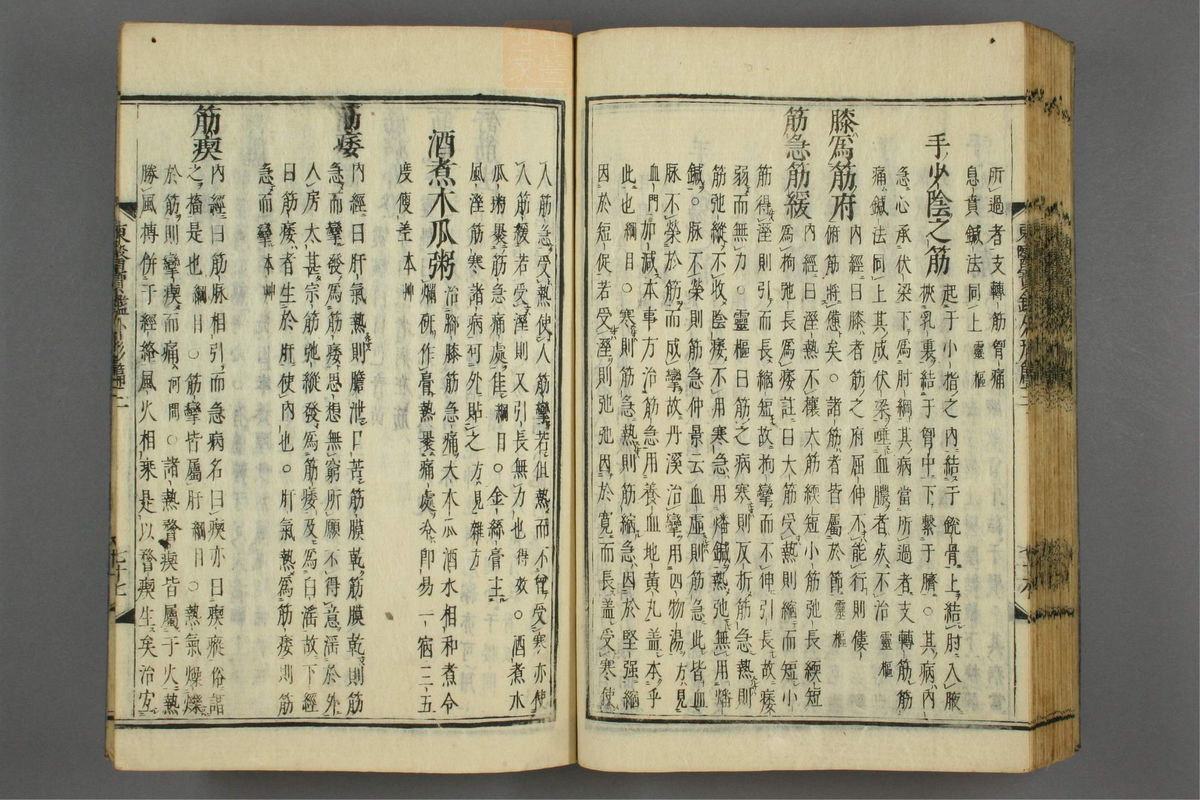 所過者支轉筋胷痛
息賁鍼法同上靈樞
手少陰之筋
起于小指之內結于銳骨上結肘入腋
挾乳裏結于胷中下繫于臍○其病內
急心承伏梁下爲肘綱其病當所過者支轉筋筋
痛鍼法同上其成伏梁唾血膿者死不治靈樞
膝爲筋府
內經曰膝者筋之府屈伸不能行則僂
俯筋將憊矣○諸筋者皆屬於節靈樞
筋急筋緩
內經曰溼熱不攘大筋緛短小筋弛長緛短
爲拘弛長爲痿註曰大筋受熱則縮而短小
筋得溼則引而長縮短故拘攣而不伸引長故痿
弱而無力○靈樞曰筋之病寒則反折筋急熱則
筋弛縱不收陰痿不用寒急用燔鍼熱弛無用燔
鍼○脉不榮則筋急仲景云血虛則筋急此皆血
脉不榮於筋而成攣故丹溪治攣用四物湯方見
血門加減本事方治筋急用養血地黃丸盖本乎
此也綱目○寒則筋急熱則筋縮急因於堅强縮
因於短促若受溼則弛弛因於寬而長盖受寒使
人筋急受熱使人筋攣若但熱而不曾受寒亦使
人筋緩若受溼則又引長無力也得效○酒煮木
瓜粥裹筋急處佳綱目○金絲膏主
風溼筋寒諸病可外貼之方見雜方
酒煮木瓜粥
治脚膝筋急痛大木瓜酒水相和煮令
爛硏作膏熱裹痛處冷卽易一宿三五
度便差本艸
筋痿
內經曰肝氣熱則膽泄口苦筋膜乾筋膜乾則筋
急而攣發爲筋痿思想無窮所願不得意淫於外
入房太甚宗筋弛縱發爲筋痿及爲白淫故下經
曰筋痿者生於肝使內也○肝氣熱爲筋痿則筋
急而攣本艸
筋瘈
內經曰筋脉相引而急病名曰瘈亦曰瘈瘲俗謂
之搐是也綱目○筋攣皆屬肝綱目○熱氣燥爍
於筋則攣瘈而痛河間○諸熱瞀瘈皆屬于火熱
勝風搏併于經絡風火相乘是以瞀瘈生矣治宜